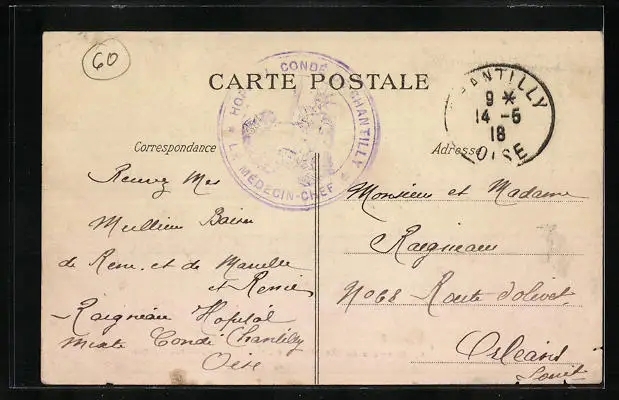 60
CARTE POSTALE
HOPITAL CONDÉ CHANTILLY
LE MÉDECIN-CHEF
CHANTILLY
9 *
14 -5
18
OISE
Correspondance
Recevez Mes
Meilleur
de Rene et de
et Renée
Raigneau Hopital
Mixte Condé Chantilly
Oise
Adresse
Monsieur et Madame
Raigneau
No 68 Route d'olivet
Orleans
Loiret